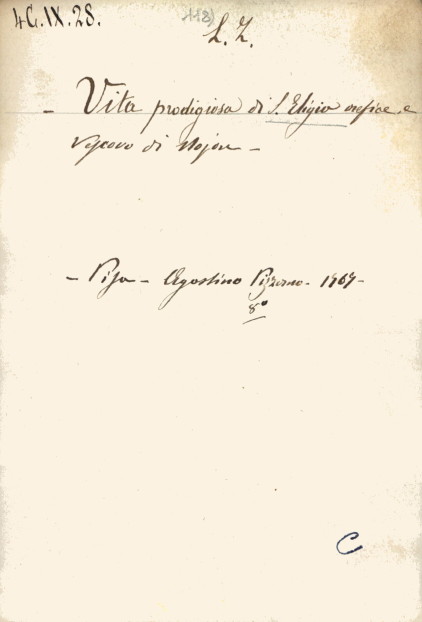 4C.IX.28.
L. Z.
- Vita prodigiosa di S. Eligio orefice, e
Vescovo di Nojon -
- Pisa - Agostino Pizzorno - 1767 -
8º
C